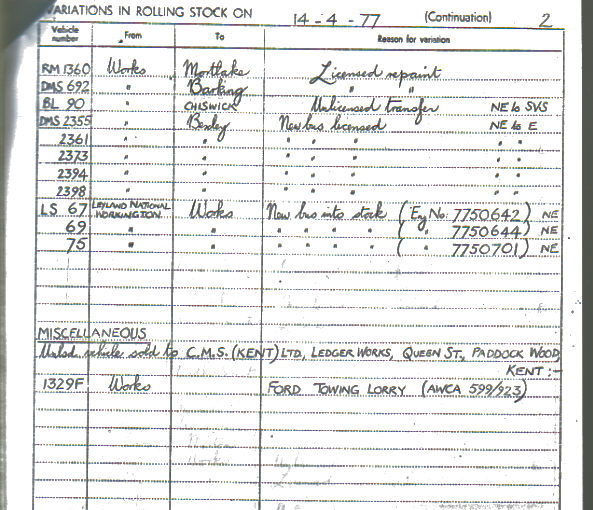 VARIATIONS IN ROLLING STOCK ON 14-4-77 (Continuation) 2
Vehicle number From To Reason for variation
RM 1360 Works Mortlake Licensed repaint
DMS 692 " Barking " "
BL 90 " CHISWICK Unlicensed transfer NE to SVS
DMS 2355 " Bexley New bus licensed NE to E
2361 " " " " " " "
2373 " " " " " " "
2394 " " " " " " "
2398 " " " " " " "
LS 67 LEYLAND NATIONAL WORKINGTON Works New bus into stock (Eng No. 7750642) NE
69 " " " " " " ( " 7750644) NE
75 " " " " " " ( " 7750701) NE
MISCELLANEOUS
Unlsd vehicle sold to C.M.S. (KENT) LTD, LEDGER WORKS, QUEEN ST., PADDOCK WOOD,
KENT :-
1329F Works FORD TOWING LORRY (AWCA 599/923)